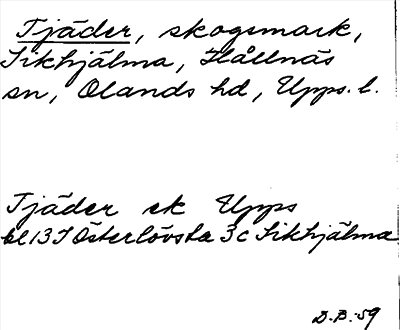 Tjäder, skogsmark,
Sikhjälma, Hållnäs
sn, Olands hd, Upps. l.
Tjäder ek Upps
bl 13 I Österlövsta 3c Sikhjälma
D.B.-59